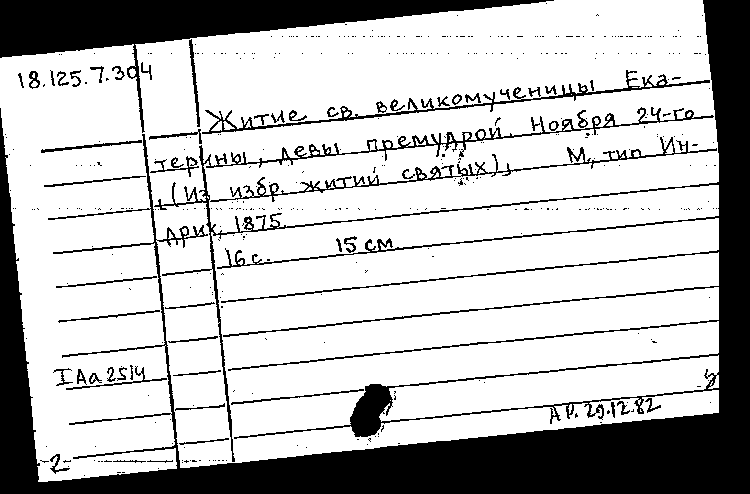 18.125.7.304
Житие св. великомученицы Ека-
терины, девы премудрой. Ноября 24-го
(Из избр. житий святых), М., тип Ин-
дрих, 1875.
16 с. 15 см
IAa 2514
АР. 29.12.82 у
2